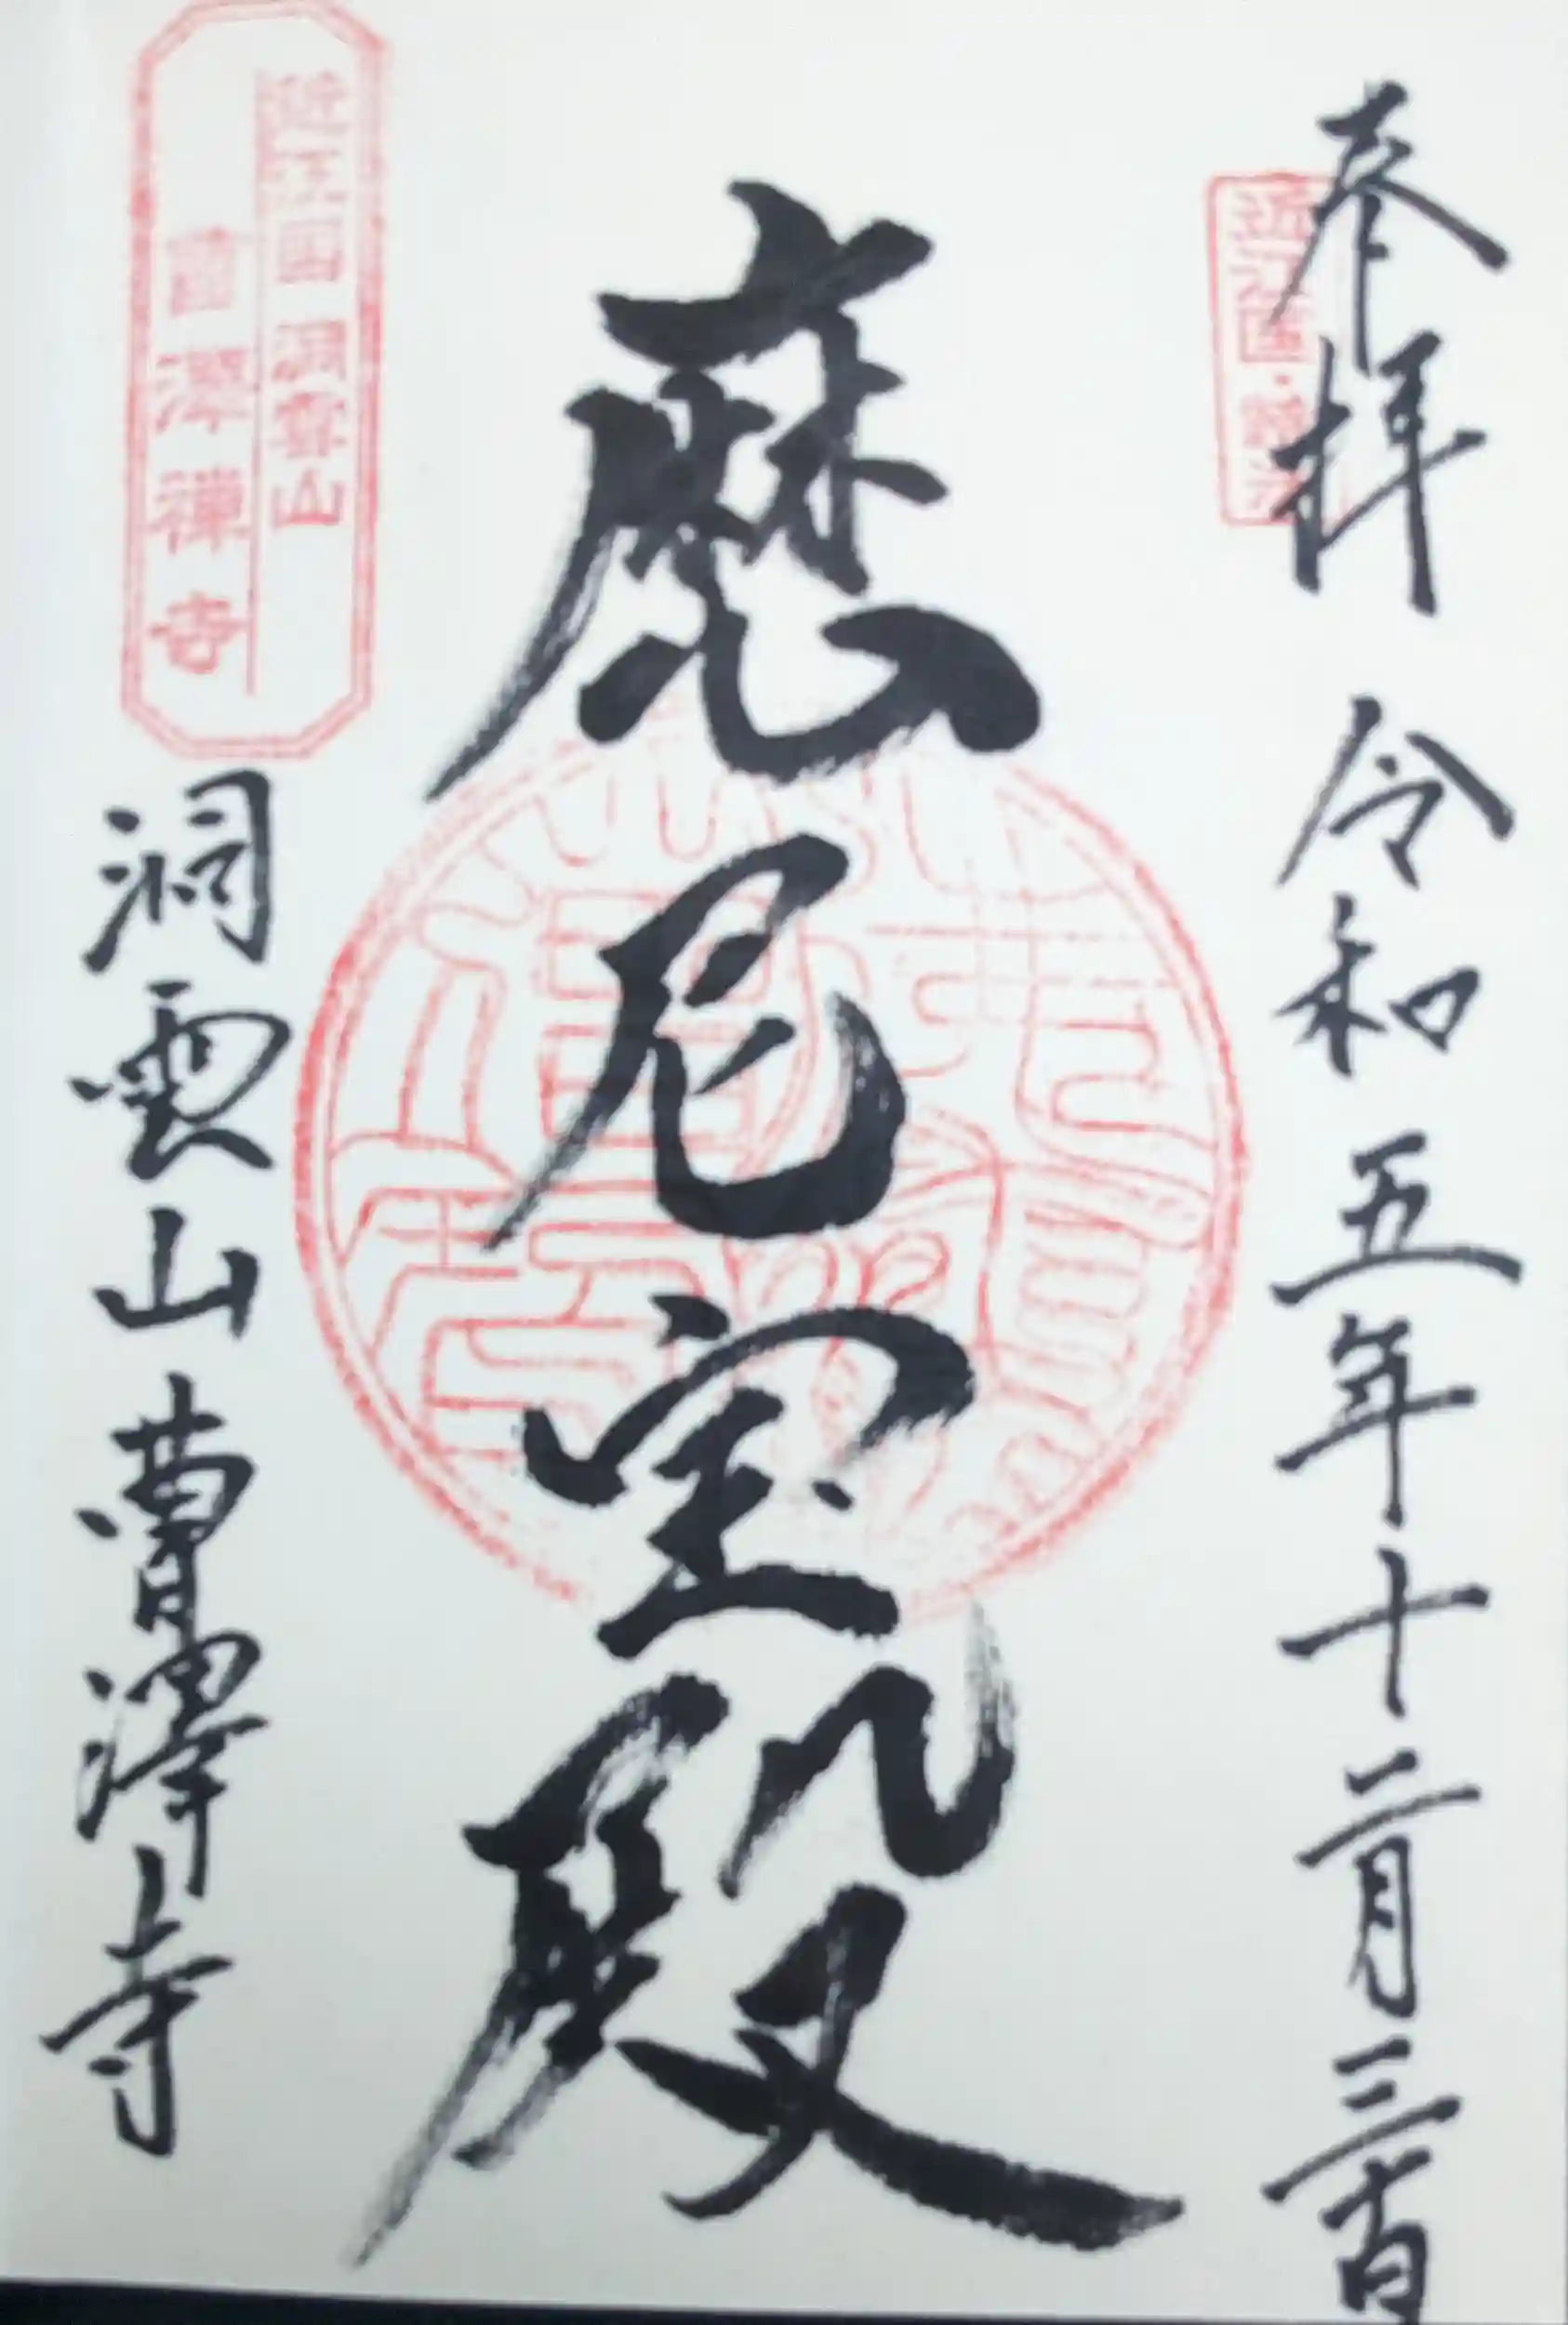 奉拝 令和五年十二月三十日
近江国・
摩尼宝殿
近江国 洞雲山
曹澤禅寺
洞雲山曹澤寺